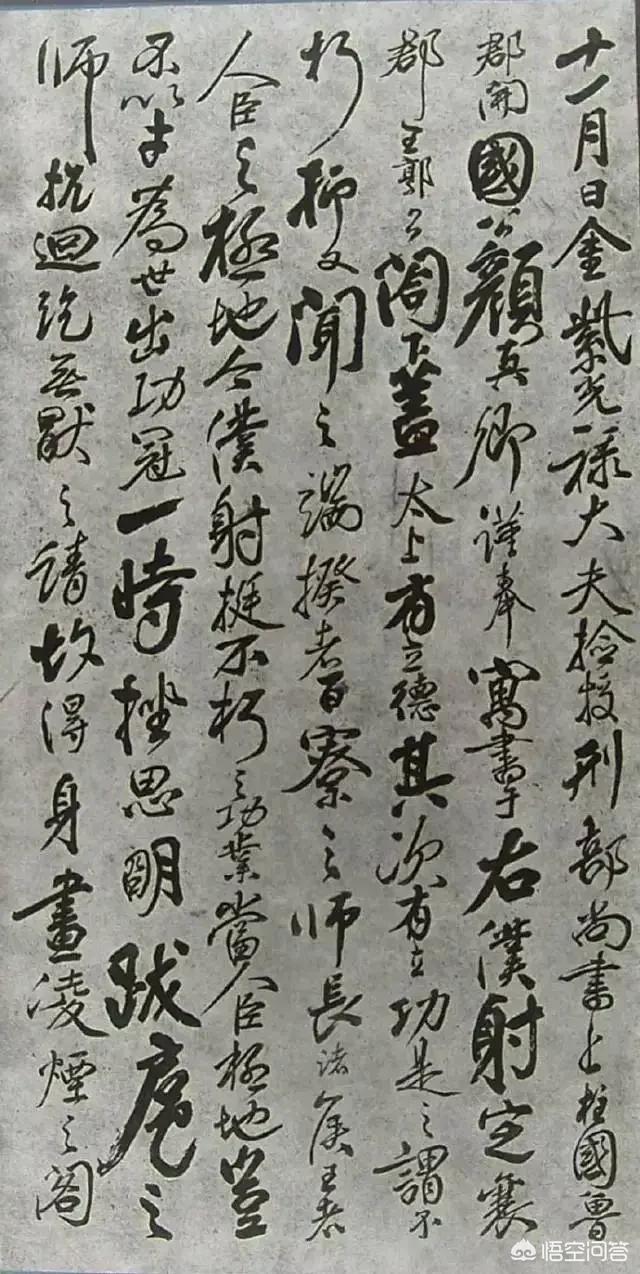 十一月日金紫光祿大夫撿挍刑部尚書上柱國魯
郡開國公顏真卿謹奉寓書于右僕射定襄
郡王郭公閤下蓋太上有立德其次有立功是之謂不
朽抑又聞之端揆者百寮之師長諸侯王者
人臣之極地今僕射挺不朽之功業當人臣極地豈
不以才為世出功冠一時挫思明跋扈之
師抗迴紇無猒之請故得身畫凌煙之閣
悟空问答